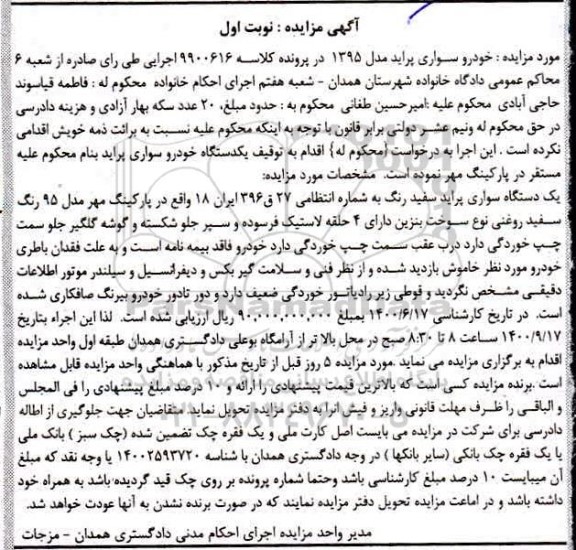 آگهی مزایده : نوبت اول
مورد مزایده : خودرو سواری پراید مدل ۱۳۹۵ در پرونده کلاسه ۹۹۰۰۶۱۶ اجرایی طی رای صادره از شعبه ۶
محاکم عمومی دادگاه خانواده شهرستان همدان - شعبه هفتم اجرای احکام خانواده محکوم له : فاطمه قیاسوند
حاجی آبادی محکوم علیه :امیرحسین طغانی محکوم به : حدود مبلغ، ۲۰ عدد سکه بهار آزادی و هزینه دادرسی
در حق محکوم له ونیم عشر دولتی برابر قانون با توجه به اینکه محکوم علیه نسبت به برائت ذمه خویش اقدامی
نکرده است . این اجرا به درخواست {محکوم له} اقدام به توقیف یکدستگاه خودرو سواری پراید بنام محکوم علیه
مستقر در پارکینگ مهر نموده است. مشخصات مورد مزایده:
یک دستگاه سواری پراید سفید رنگ به شماره انتظامی ۲۷ ق۳۹۶ ایران ۱۸ واقع در پارکینگ مهر مدل ۹۵ رنگ
سفید روغنی نوع سوخت بنزین دارای ۴ حلقه لاستیک فرسوده و سپر جلو شکسته و گوشه گلگیر جلو سمت
چپ خوردگی دارد درب عقب سمت چپ خوردگی دارد خودرو فاقد بیمه نامه است و به علت فقدان باطری
خودرو مورد نظر خاموش بازدید شده و از نظر فنی و سلامت گیر بکس و دیفرانسیل و سیلندر موتور اطلاعات
دقیقی مشخص نگردید و قوطی زیر رادیاتور خوردگی ضعیف دارد و دور تادور خودرو بیرنگ صافکاری شده
است. در تاریخ کارشناسی ۱۴۰۰/۶/۱۷ بمبلغ ۹۰۰,۰۰۰,۰۰۰ ریال ارزیابی شده است. لذا این اجراء بتاریخ
۱۴۰۰/۹/۱۷ ساعت ۸ تا ۸:۳۰ صبح در محل بالا تر از آرامگاه بوعلی دادگستری همدان طبقه اول واحد مزایده
اقدام به برگزاری مزایده می نماید .مورد مزایده ۵ روز قبل از تاریخ مذکور با هماهنگی واحد مزایده قابل مشاهده
است .برنده مزایده کسی است که بالاترین قیمت پیشنهادی را ارائه و ۱۰ درصد مبلغ پیشنهادی را فی المجلس
و الباقی را ظرف مهلت قانونی واریز و فیش آنرا به دفتر مزایده تحویل نماید متقاضیان جهت جلوگیری از اطاله
دادرسی برای شرکت در مزایده می بایست اصل کارت ملی و یک فقره چک تضمین شده (چک سبز ) بانک ملی
یا یک فقره چک بانکی (سایر بانکها ) در وجه دادگستری همدان با شناسه ۱۴۰۰۲۵۹۳۷۲۰ یا وجه نقد که مبلغ
آن میبایست ۱۰ درصد مبلغ کارشناسی باشد وحتما شماره پرونده بر روی چک قید گردیده باشد به همراه خود
داشته باشد و در اماعت مزایده تحویل دفتر مزایده نمایند که در صورت برنده نشدن به آنها عودت خواهد شد.
مدیر واحد مزایده اجرای احکام مدنی دادگستری همدان - مزجات